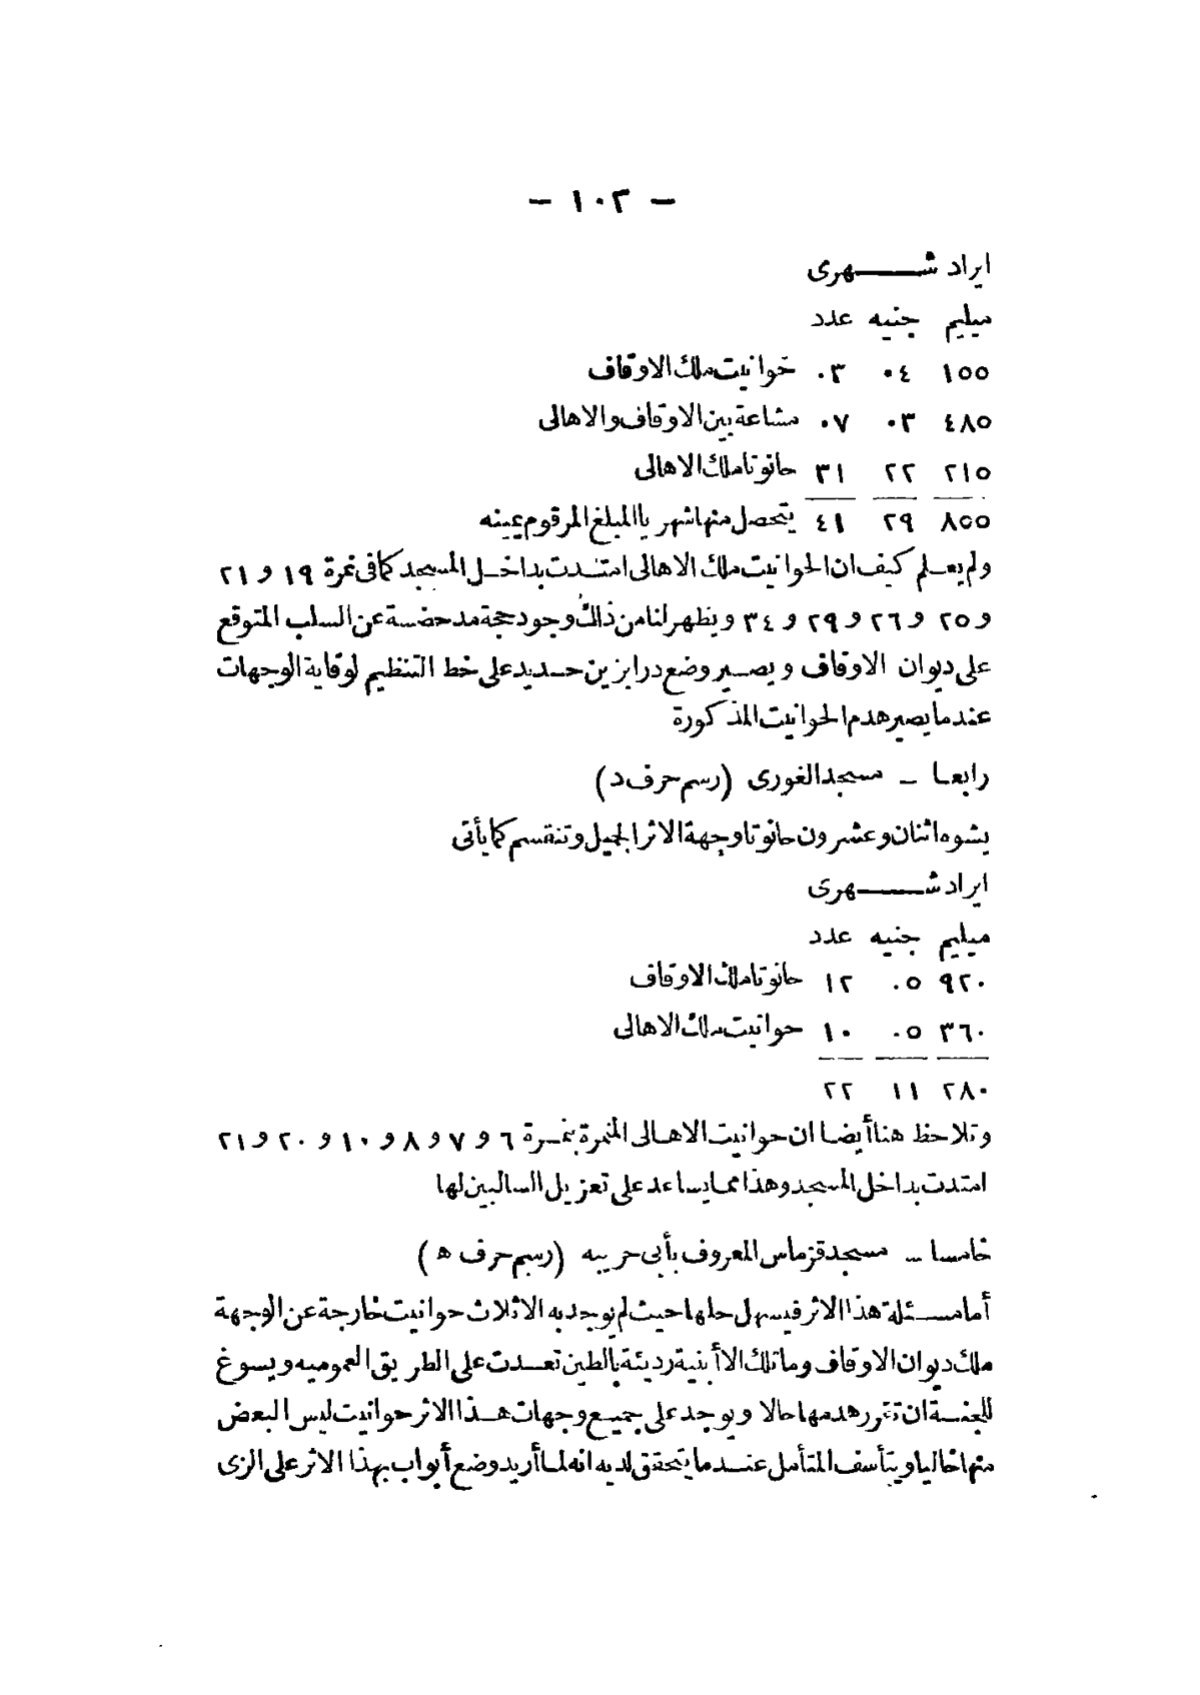 — ١٠٢ —
ايراد شهرى
ميليم جنيه عدد
١٥٥ ٠٤ ٠٣ حوانيت ملك الاوقاف
٤٨٥ ٠٣ ٠٧ مشاعة بين الاوقاف والاهالى
٢١٥ ٢٢ ٣١ حانوتا ملك الاهالى
٨٥٥ ٢٩ ٤١ يتحصل منها شهريا المبلغ المرقوم يمينه
ولم يعلم كيف ان الحوانيت ملك الاهالى امتدت بداخل المسجد كما فى نمرة ١٩ و ٢١
و ٢٥ و ٢٦ و ٢٩ و ٣٤ ويظهر لنا من ذلك وجود حجة مدحضة عن السلب المتوقع
على ديوان الاوقاف ويصير وضع درابزين حديد على خط التنظيم لوقاية الوجهات
عندما يصير هدم الحوانيت المذكورة
رابعا — مسجد الغورى (رسم حرف د)
يشوه اثنان وعشرون حانوتا وجهة الاثر الجميل وتنقسم كما يأتى
ايراد شهرى
ميليم جنيه عدد
٩٢٠ ٠٥ ١٢ حانوتا ملك الاوقاف
٣٦٠ ٠٥ ١٠ حوانيت ملك الاهالى
٢٨٠ ١١ ٢٢
وتلاحظ هنا أيضا ان حوانيت الاهالى المنمرة بنمرة ٦ و ٧ و ٨ و ١٠ و ٢٠ و ٢١
امتدت بداخل المسجد وهذا مما يساعد على تعزيل السالبين لها
خامسا — مسجد قزماس المعروف بأبى حريبه (رسم حرف ه)
أما مسئلة هذا الاثر فيسهل حلها حيث لم يوجد به الا ثلاث حوانيت خارجة عن الوجهة
ملك ديوان الاوقاف وما تلك الا أبنية رديئة بالطين تعدت على الطريق العموميه ويسوغ
للجنة ان تقرر هدمها حالا ويوجد على جميع وجهات هذا الاثر حوانيت ليس البعض
منها خاليا ويتأسف المتأمل عندما يتحقق لديه انه لما أريد وضع أبواب بهذا الاثر على الزى